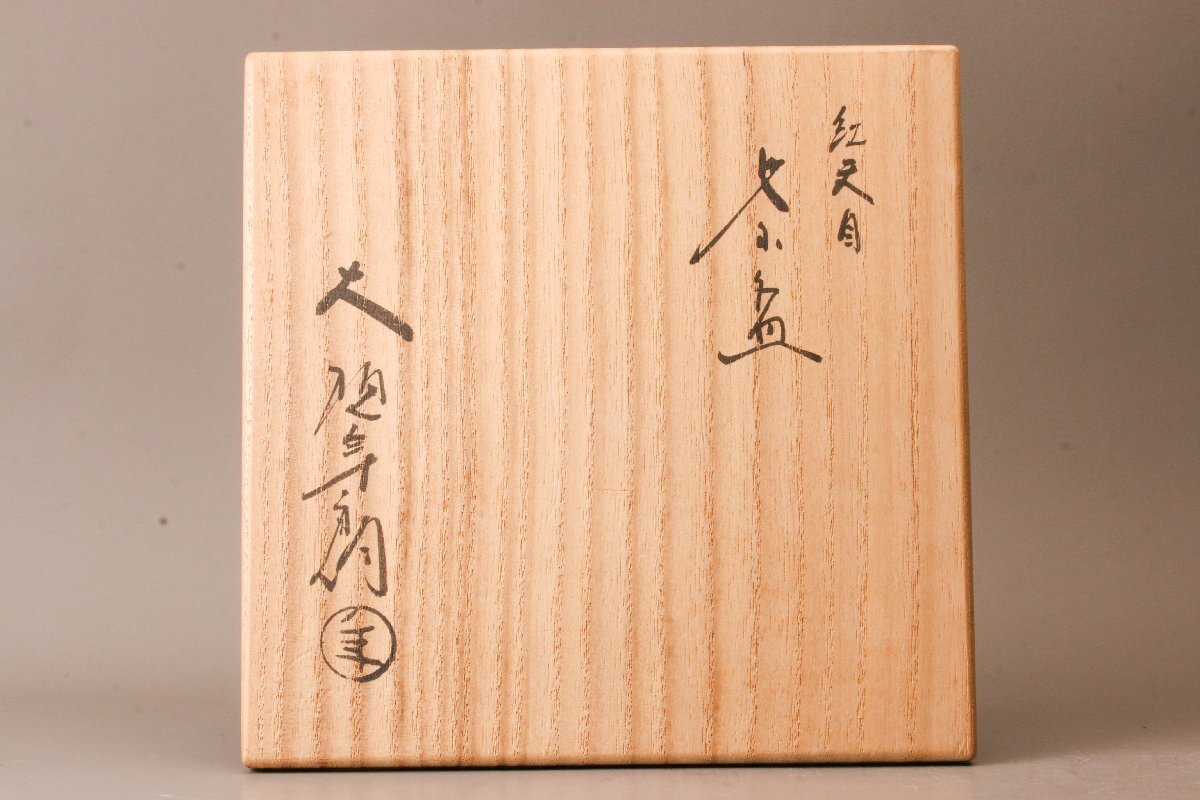 紅天目
茶盌
大樋年朗
年